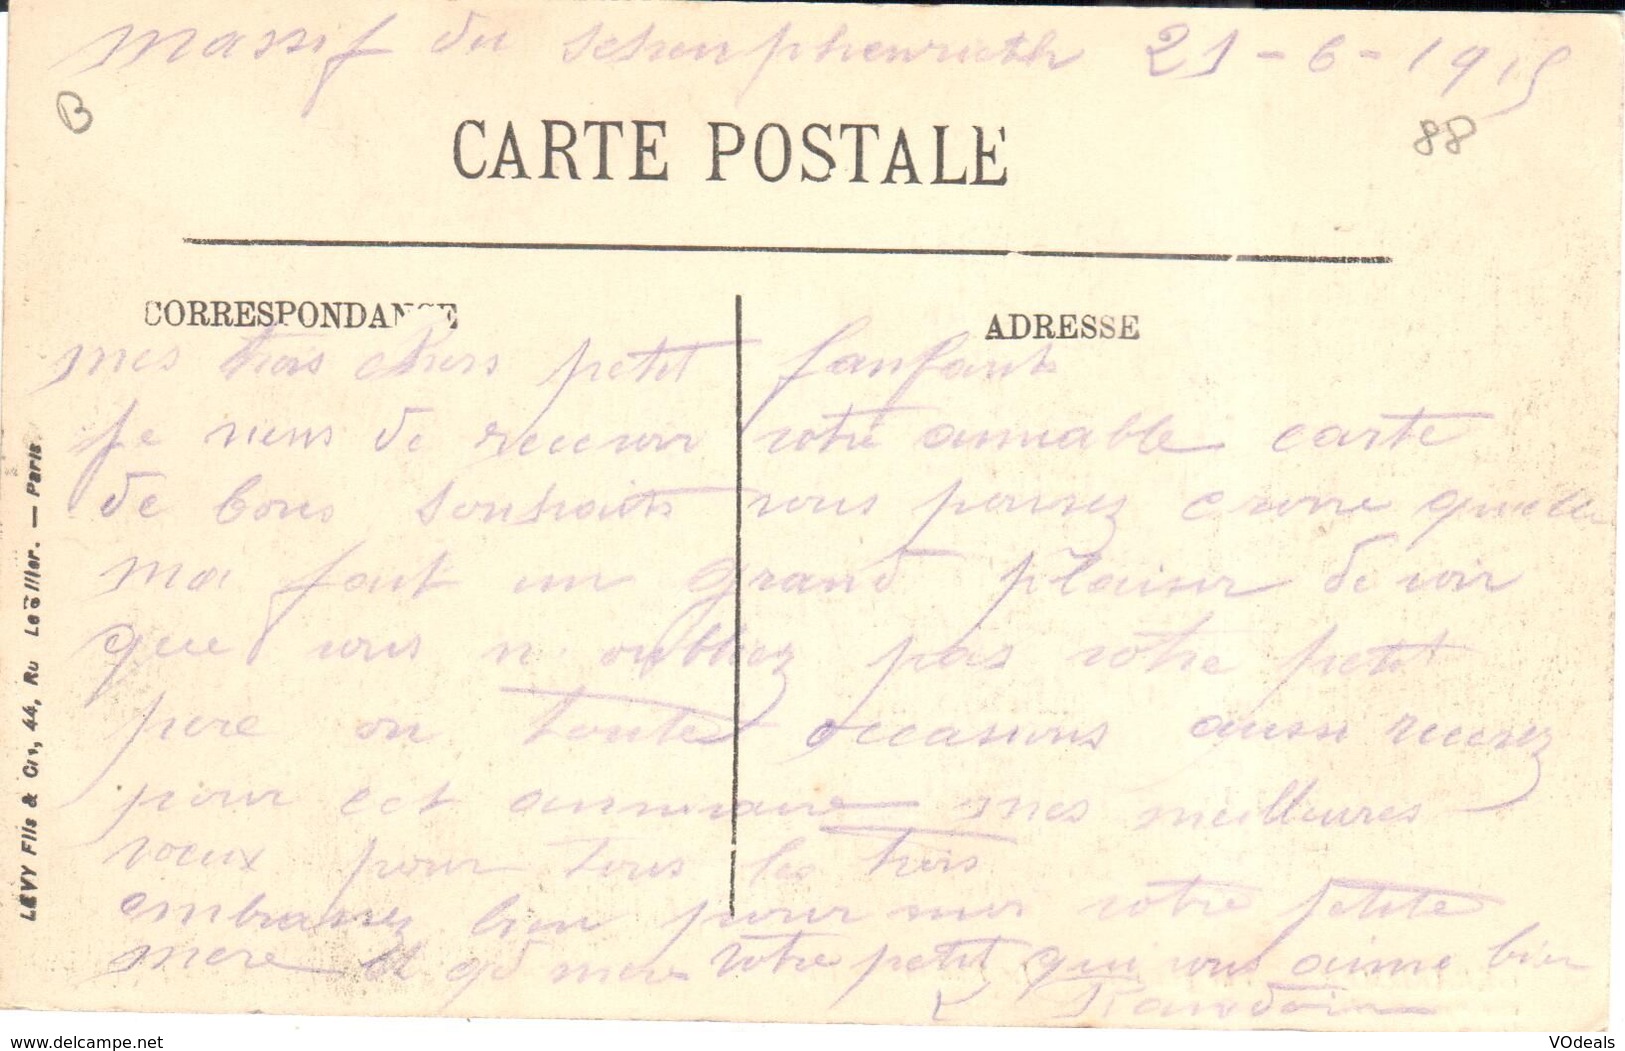 Massif du Schenphenrieth 21-6-1915
B
88
CARTE POSTALE
CORRESPONDANCE
ADRESSE
mes trois chers petit fanfants
Je viens de recevoir votre aimable carte
de bons souhaits vous pensez croire quelle
ma fait un grand plaisir de voir
que vous n'oubliez pas votre petit
pere en toute occasions aussi recevez
pour cet anniversaire mes meilleures
vœux pour tous les trois
embrassez bien pour moi votre petite
mere et gd mere votre petit qui vous aime bien
LEVY Fils & Cie, 44, Ru Letellier. — Paris
delcampe.net
VOdeals